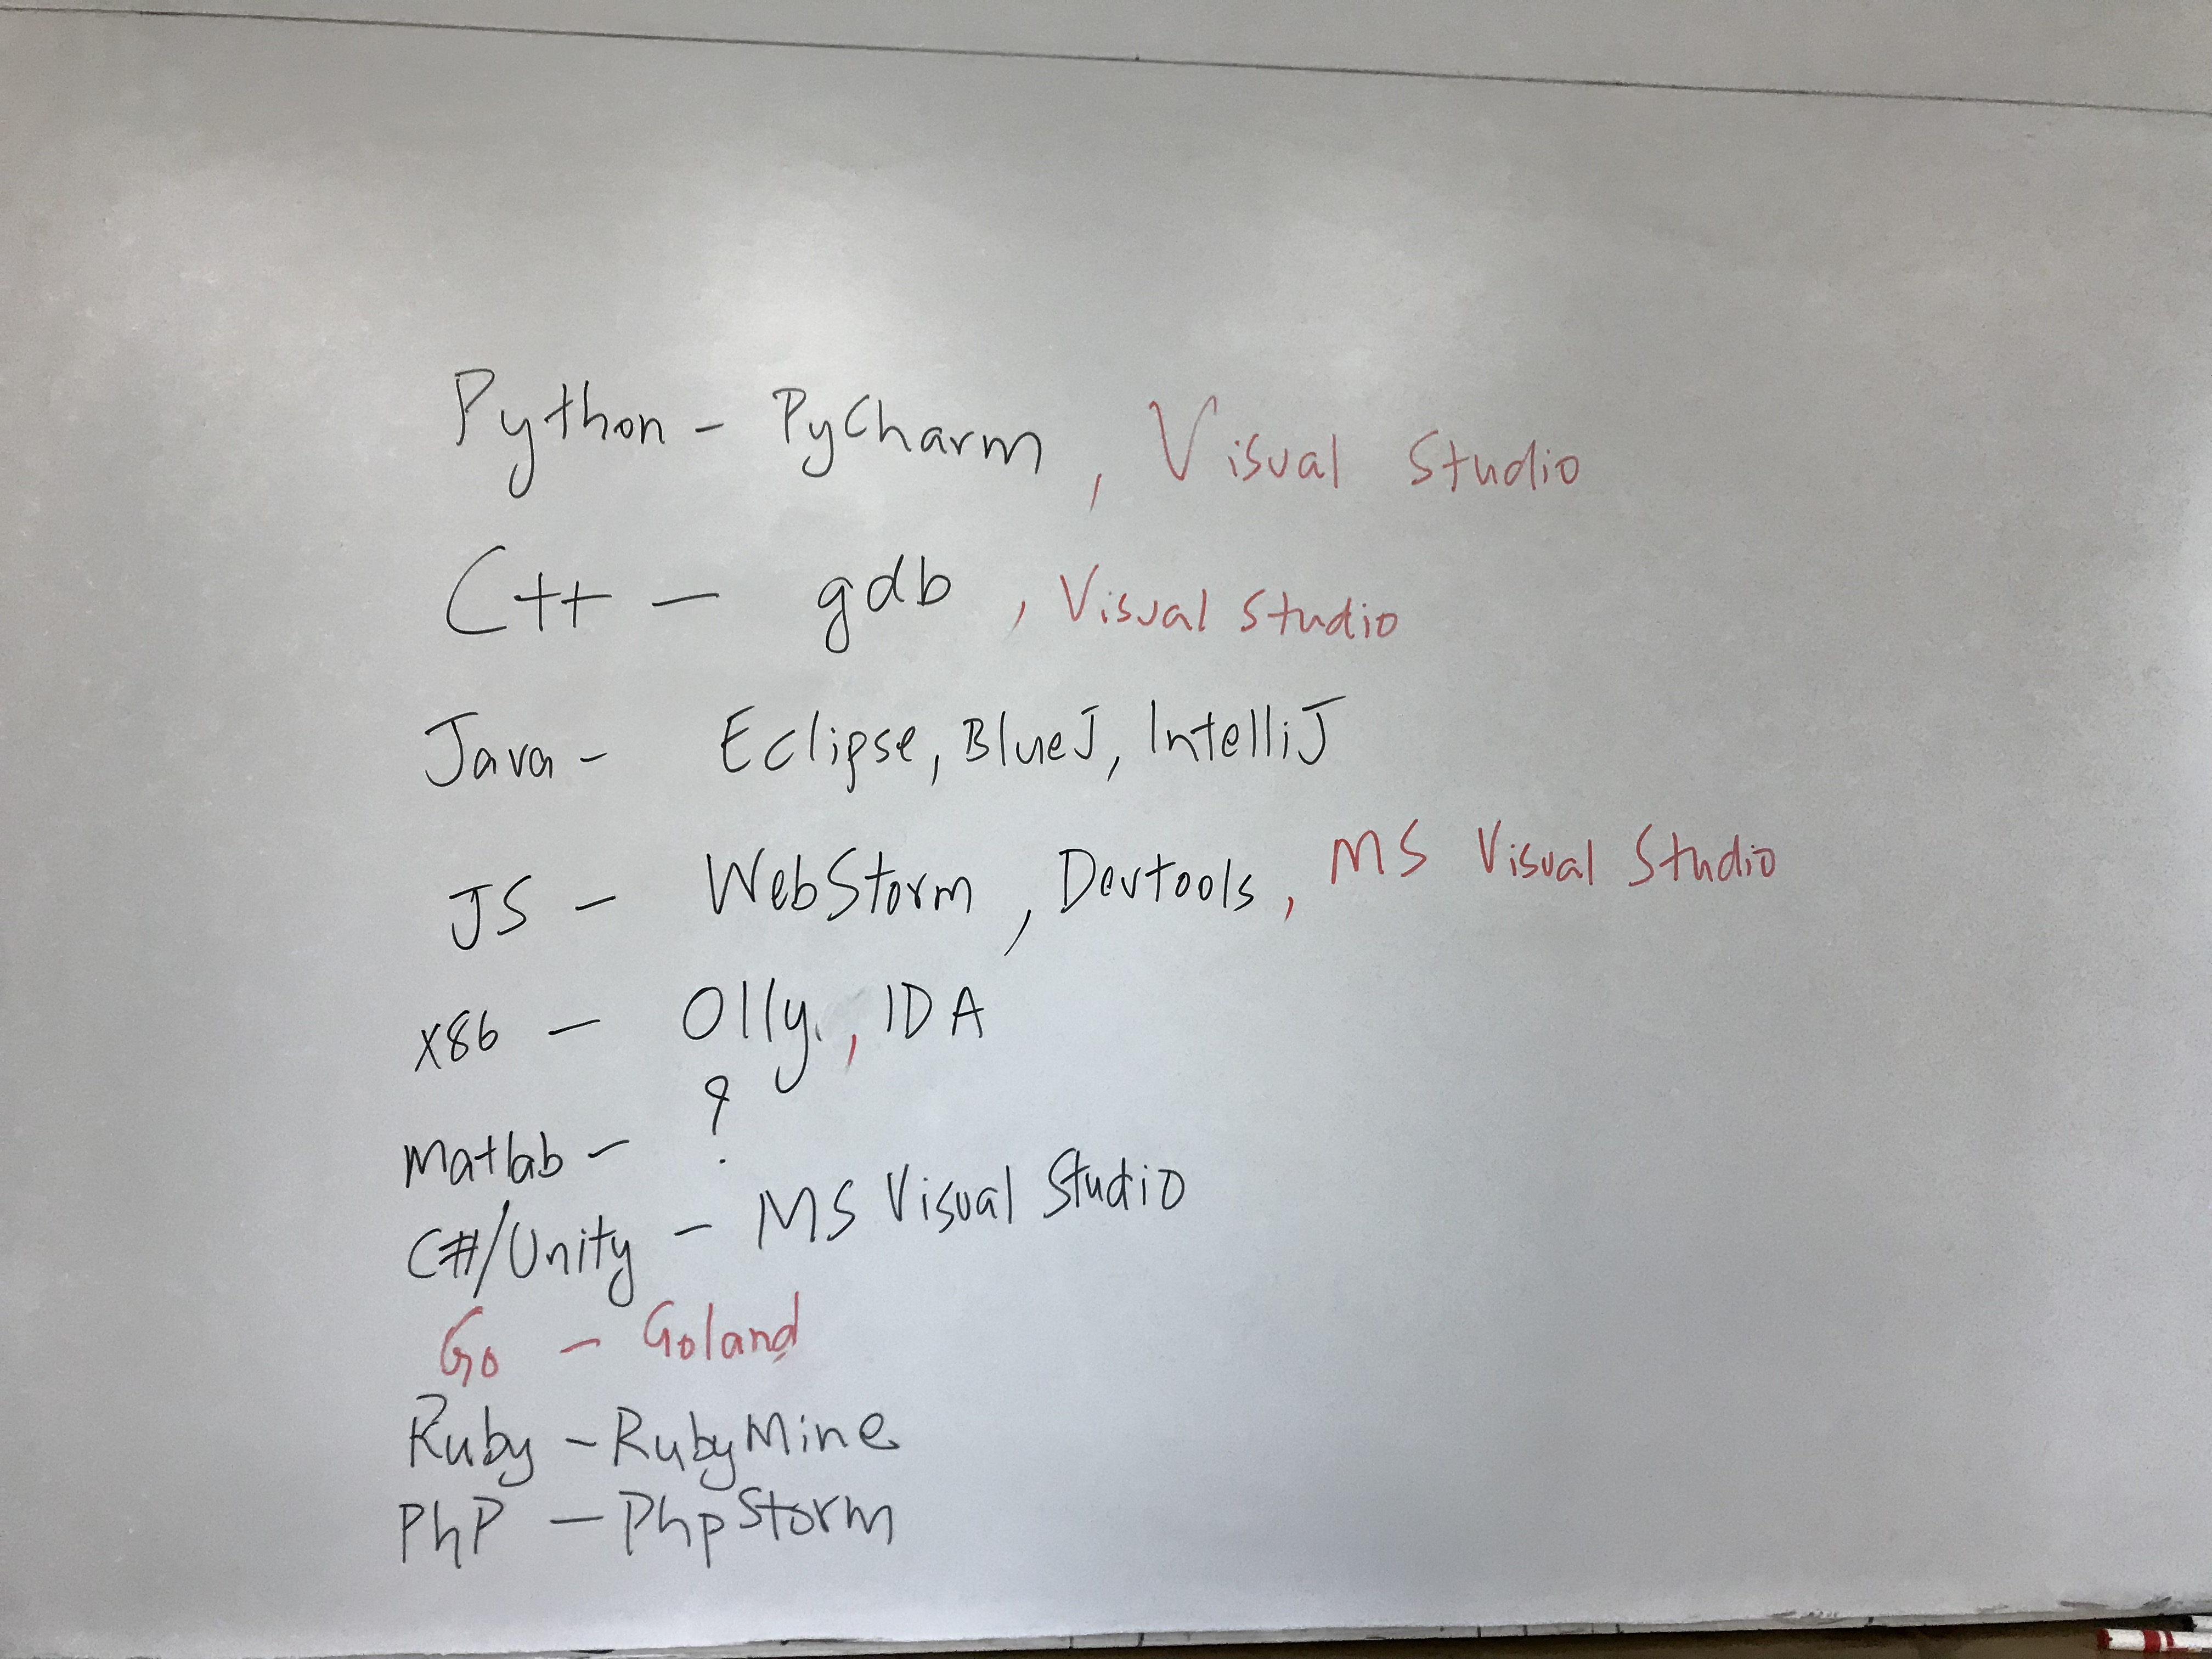 Python - PyCharm, Visual Studio
C++ - gdb, Visual Studio
Java - Eclipse, BlueJ, IntelliJ
JS - WebStorm, Devtools, MS Visual Studio
x86 - Olly, IDA
Matlab - ?
C#/Unity - MS Visual Studio
Go - Goland
Ruby - RubyMine
PhP - PhpStorm